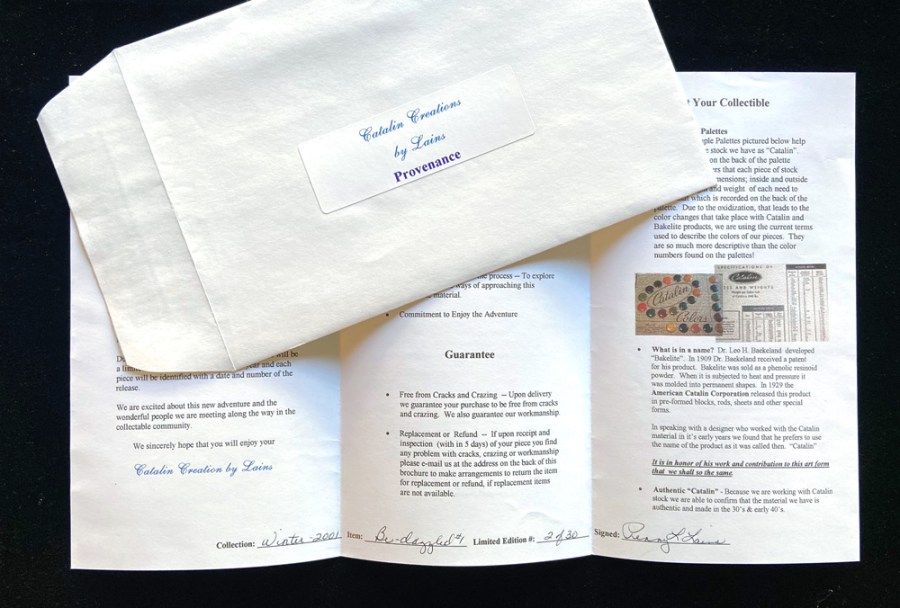 Catalin Creations
by Lains
Provenance
will be
a
year and each
piece will be identified with a date and number of the
release.
We are excited about this new adventure and the
wonderful people we are meeting along the way in the
collectable community.
We sincerely hope that you will enjoy your
Catalin Creation by Lains
Collection: Winter - 2001
the process -- To explore
ways of approaching this
material.
• Commitment to Enjoy the Adventure
Guarantee
• Free from Cracks and Crazing -- Upon delivery
we guarantee your purchase to be free from cracks
and crazing. We also guarantee our workmanship.
• Replacement or Refund -- If upon receipt and
inspection (with in 5 days) of your piece you find
any problem with cracks, crazing or workmanship
please e-mail us at the address on the back of this
brochure to make arrangements to return the item
for replacement or refund, if replacement items
are not available.
Item: Be-dazzled #1 Limited Edition #: 2 of 30
Your Collectible
Palettes
Palettes pictured below help
stock we have as "Catalin".
on the back of the palette
that each piece of stock
inside and outside
and weight of each need to
which is recorded on the back of the
palette. Due to the oxidization, that leads to the
color changes that take place with Catalin and
Bakelite products, we are using the current terms
used to describe the colors of our pieces. They
are so much more descriptive than the color
numbers found on the palettes!
Catalin
Colors
SPECIFICATIONS OF
Catalin
AND WEIGHTS
• What is in a name? Dr. Leo H. Baekeland developed
"Bakelite". In 1909 Dr. Baekeland received a patent
for his product. Bakelite was sold as a phenolic resinoid
powder. When it is subjected to heat and pressure it
was molded into permanent shapes. In 1929 the
American Catalin Corporation released this product
in pre-formed blocks, rods, sheets and other special
forms.
In speaking with a designer who worked with the Catalin
material in it's early years we found that he prefers to use
the name of the product as it was called then. "Catalin"
It is in honor of his work and contribution to this art form
that we shall so the same.
• Authentic "Catalin" - Because we are working with Catalin
stock we are able to confirm that the material we have is
authentic and made in the 30's & early 40's.
Signed: Penny L. Lains